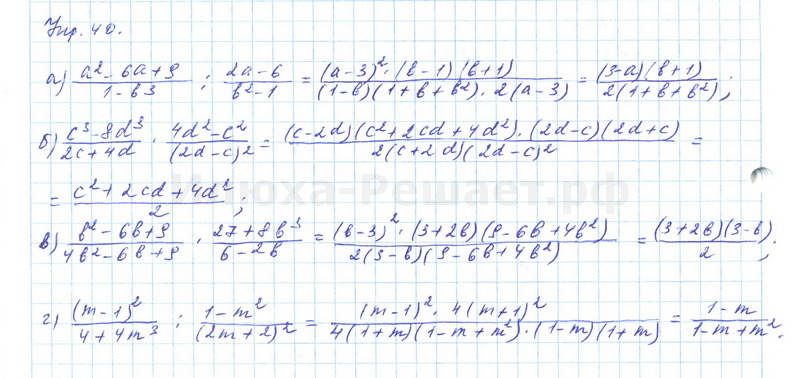 Упр. 40.
а) (a² - 6a + 9)/(1 - b³) : (2a - 6)/(b² - 1) = ((a - 3)² · (b - 1)(b + 1))/((1 - b)(1 + b + b²) · 2(a - 3)) = ((3 - a)(b + 1))/(2(1 + b + b²));
б) (c³ - 8d³)/(2c + 4d) · (4d² - c²)/(2d - c)² = ((c - 2d)(c² + 2cd + 4d²) · (2d - c)(2d + c))/(2(c + 2d)(2d - c)²) =
= (c² + 2cd + 4d²)/2;
Илюха-Решает.рф
в) (b² - 6b + 9)/(4b² - 6b + 9) · (27 + 8b³)/(6 - 2b) = ((b - 3)² · (3 + 2b)(9 - 6b + 4b²))/(2(3 - b)(9 - 6b + 4b²)) = ((3 + 2b)(3 - b))/2;
г) (m - 1)²/(4 + 4m³) : (1 - m²)/(2m + 2)² = ((m - 1)² · 4(m + 1)²)/(4(1 + m)(1 - m + m²) · (1 - m)(1 + m)) = (1 - m)/(1 - m + m²).